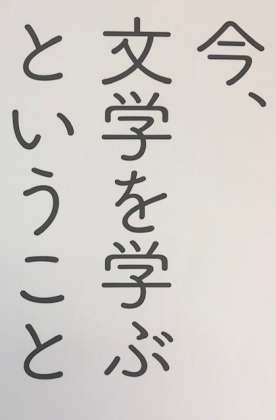 今、
文学を学ぶ
ということ